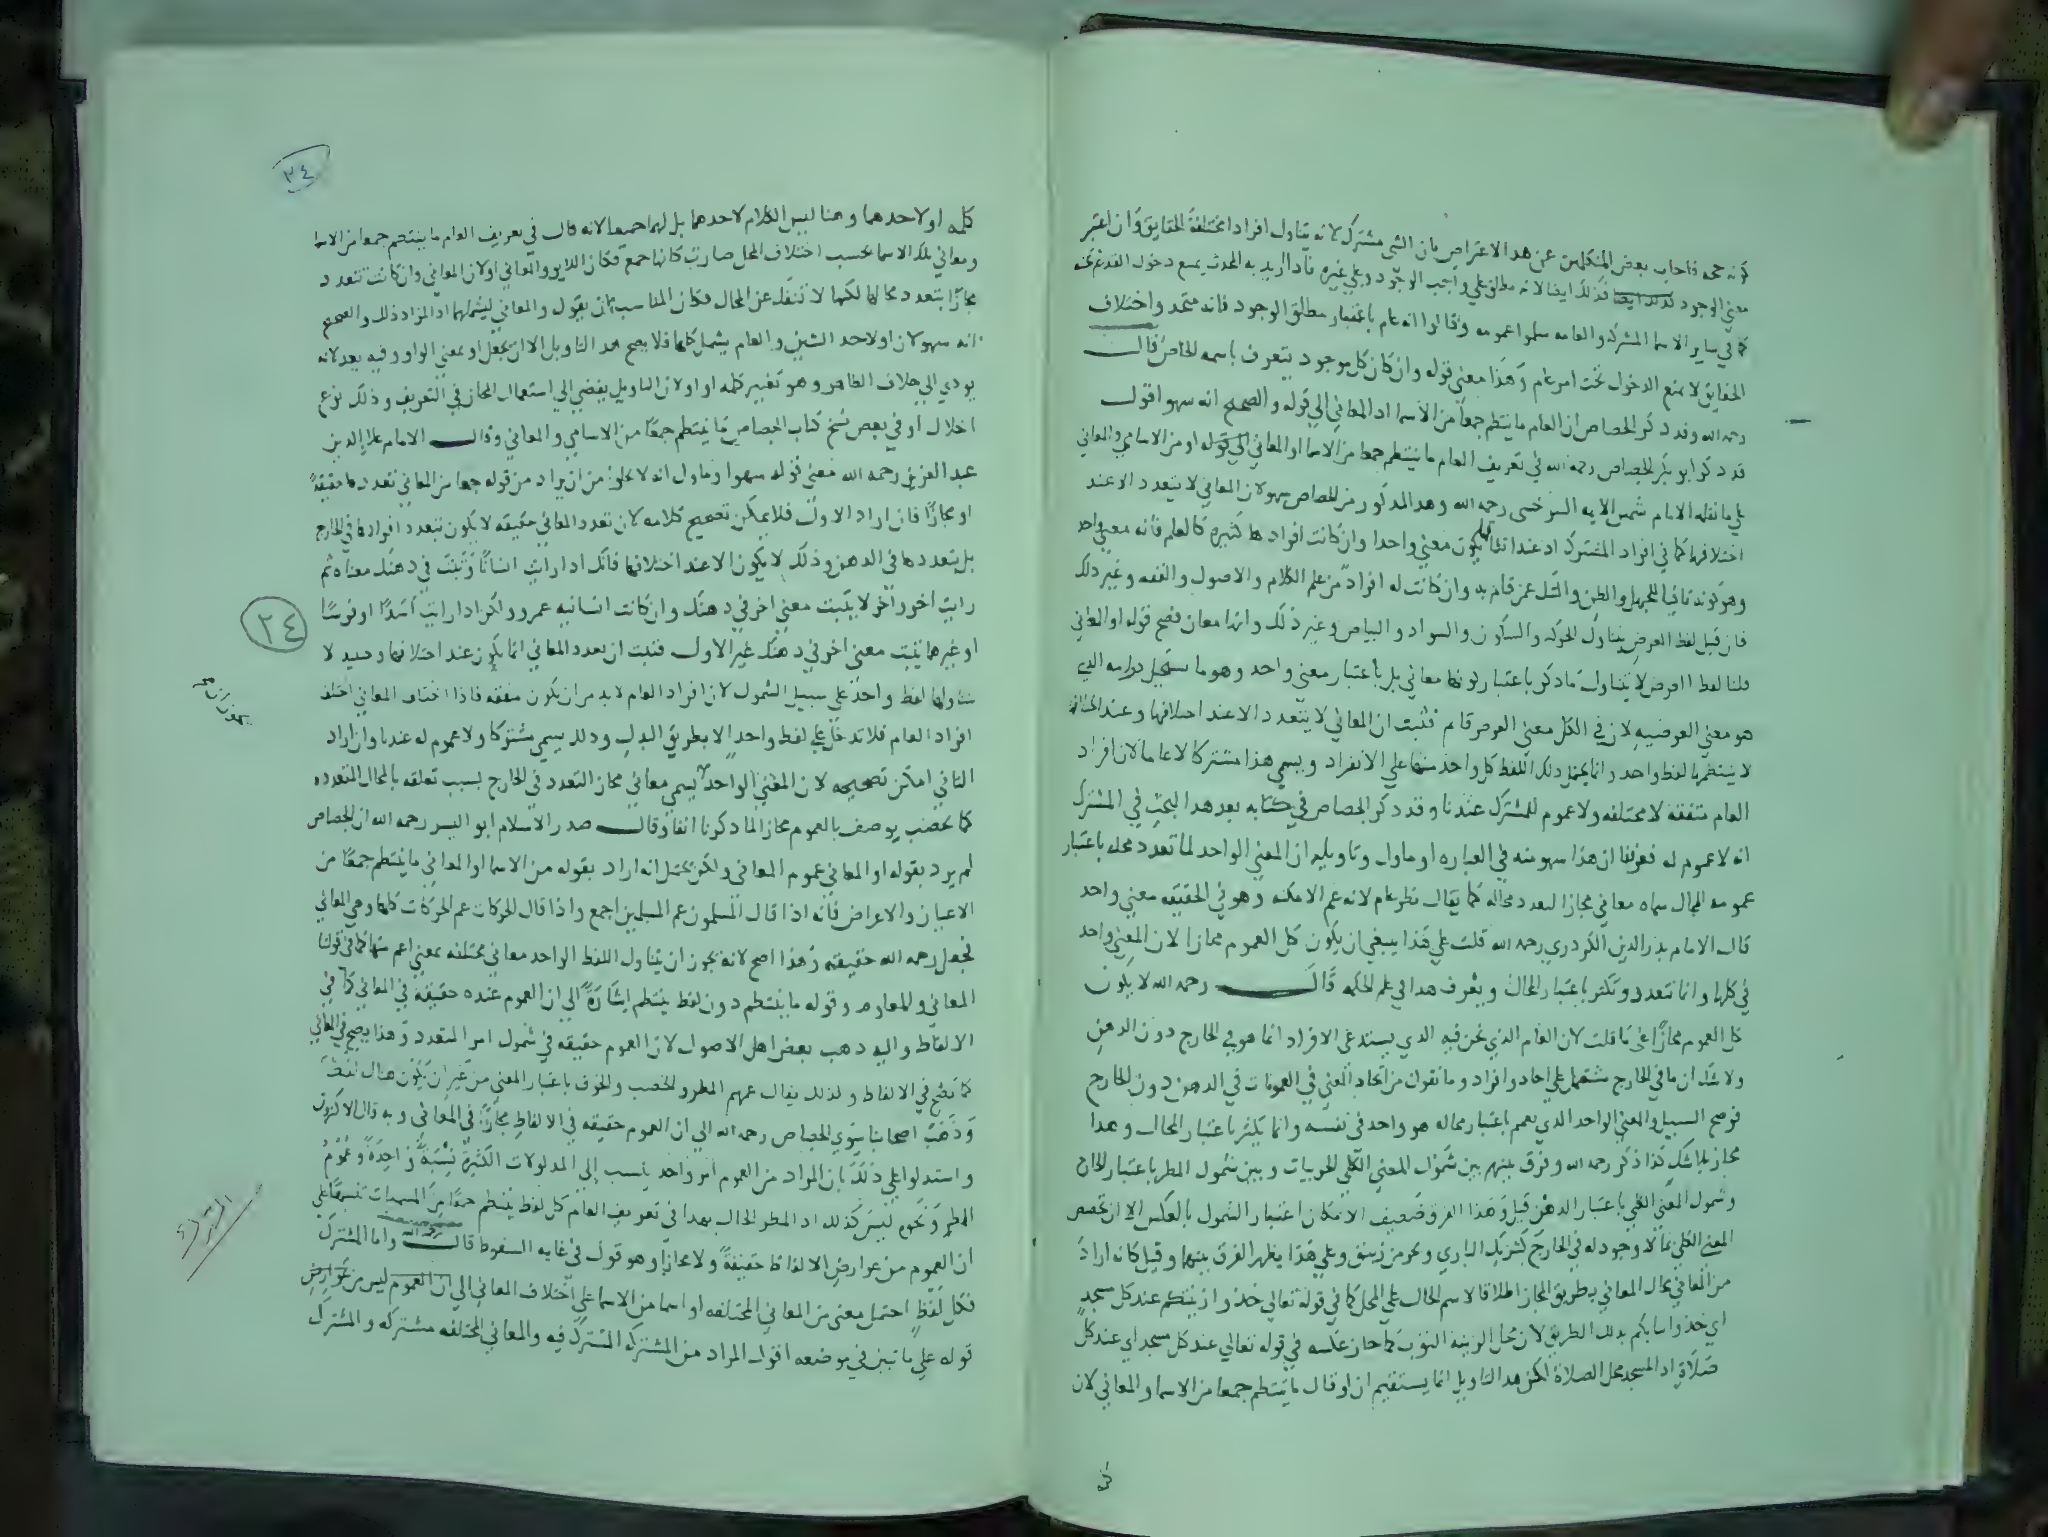 كونه حجه فاجاب بعض المتكلمين عن هدا الاعتراض بان الشي مشترك لانه يتناول افرادا مختلفة الحقايق وان اعتبر
معني الوجود فكذلك ايضا لانه مطلق علي واجب الوجود وعلي غيره فاذا اريد به المحدث يمنع دخول القديم تحته
كما في ساير الاسما المشتركه والعامه سلموا عمومه وقالوا انه عام باعتبار مطلق الوجود فانه متحد واختلاف
الحقايق لا يمنع الدخول تحت امر عام وهذا معني قوله وان كان كل موجود يتعرف باسمه الخاص قال
رحمه الله وقد ذكر الجصاص ان العام ما ينتظم جمعا من الاسما او المعاني الي قوله والصحيح انه سهو اقول
قد ذكر ابو بكر الجصاص رحمه الله في تعريف العام ما ينتظم جمعا من الاسما او المعاني الي قوله او من الاسامي والمعاني
علي ما نقله الامام شمس الايمه السرخسي رحمه الله وهدا المذكور من الجصاص سهو لان المعاني لا يتعدد الا عند
اختلافها كما في افراد المشترك اد عند اتفاقها يكون معني واحدا وان كانت افرادها كثيره كالعلم فانه معني واحد
وهو كونه نافيا للجهل والظن والشك عمن قام به وان كانت له افراد من علم الكلام والاصول والفقه وغير ذلك
فان قيل لفظ العرض يتناول الحركه والسكون والسواد والبياض وغير ذلك وانها معان فصح قوله او المعاني
قلنا لفظ العرض لا يتناول ما ذكر باعتبار كونها معاني بل باعتبار معني واحد وهو ما يستحيل دوامه الذي
هو معني العرضيه لان في الكل معني العرض قايم فثبت ان المعاني لا يتعدد الا عند اختلافها وعند اختلافها
لا ينتظمها لفظ واحد وانما يحتمل ذلك اللفظ كل واحد منها علي الانفراد ويسمي هذا مشتركا لا عاما لان افراد
العام متفقه لا مختلفه ولا عموم للمشترك عندنا وقد ذكر الجصاص في كتابه بعد هدا البحث في المشترك
انه لا عموم له فعرفنا ان هذا سهو منه في العباره او ماول وتاويله ان المعني الواحد لما تعدد محله باعتبار
عمومه المحال سماه معاني مجازا لتعدد محاله كما يقال مطر عام لانه عم الامكنه وهو في الحقيقه معني واحد
قال الامام بدر الدين الكردري رحمه الله قلت علي هذا ينبغي ان يكون كل العموم مجازا لان المعني واحد
في كلها وانما تتعدد وتكثر باعتبار المحال ويعرف هدا في علم الحكمه قال رحمه الله لا يكون
كل العموم مجازا علي ما قلت لان العام الذي نحن فيه الدي يستدعي الافراد انما هو في الخارج دون الدهن
ولا شك ان ما في الخارج مشتمل علي احاد وافراد وما نقول من اتحاد المعني في العمومات في الدهن دون الخارج
فوضح السبيل والمعني الواحد الدي يعمم باعتبار محاله هو واحد في نفسه وانما يكثر باعتبار المحال وهدا
مجاز بلا شك كذا ذكر رحمه الله وفرق بينهم بين شمول المعني الكلي للجزييات وبين شمول المطر باعتبار الخارج
وشمول المعني الكلي باعتبار الدهن قيل وهذا الفرق ضعيف لامكان اعتبار الشمول بالعكس الا ان تخصص
المعني الكلي بما لا وجود له في الخارج كشريك الباري وبحر من زيبق وعلي هذا يظهر الفرق بينهما وقيل كانه اراد
من المعاني محال المعاني بطريق المجاز اطلاقا لاسم الحال علي المحل كما في قوله تعالي خذوا زينتكم عند كل مسجد
اي خذوا ثيابكم بدلك الطريق لان محل الزينة الثوب كما جاز عكسه في قوله تعالي عند كل مسجد اي عند كل
صلاة اد المسجد محل الصلاة لكن هدا التاويل انما يستقيم ان لو قال ما ينتظم جمعا من الاسما والمعاني لان
٢٤
كلمه او لاحدهما وهنا ليس الكلام لاحدهما بل لهما جميعا لانه قال في تعريف العام ما ينتظم جمعا من الاسما
ومعاني تلك الاسما بحسب اختلاف المحل صارت كانها جمع فكان اللايق والمعاني او لان المعاني وان كانت تتعدد
مجازا بتعدد محالها لكنها لا تنفك عن المحال فكان المناسب ان يقول والمعاني ليشملهما اد المراد ذلك والصحيح
انه سهو لان او لاحد الشيين والعام يشمل كلها فلا يصح هدا التاويل الا ان يجعل او بمعني الواو وفيه بعد لانه
يودي الي خلاف الظاهر وهو تغيير كلمه او او لان التاويل يفضي الي استعمال المجاز في التعريف وذلك نوع
اخلال او في بعض نسخ كتاب الجصاص ما ينتظم جمعا من الاسامي والمعاني وقال الامام علا الدين
عبد العزيز رحمه الله معني قوله سهو او ماول انه لا يخلو من ان يراد من قوله جمعا من المعاني تعددها حقيقة
او مجازا فان اراد الاول فلا يمكن تصحيح كلامه لان تعدد المعاني حقيقه لا يكون بتعدد افرادها في الخارج
بل بتعددها في الدهن وذلك لا يكون الا عند اختلافها فانك ادا رايت انسانا وثبت في دهنك معناه ثم
رايت اخر واخر لا يثبت معني اخر في دهنك وان كانت انسانيه عمرو ولكن ادا رايت اسدا او فرسا
او غيرهما يثبت معني اخر في دهنك غير الاول فثبت ان تعدد المعاني انما يكون عند اختلافها وحينيد لا
يتناولها لفظ واحد علي سبيل الشمول لان افراد العام لابد من ان يكون متفقه فاذا اختلف المعاني اختلف
افراد العام فلا تدخل علي لفظ واحد الا بطريق البدل ودلك يسمي مشتركا ولا عموم له عندنا وان اراد
الثاني امكن تصحيحه لان المعني الواحد يسمي معاني مجاز التعدد في الخارج بسبب تعلقه بالمحال المتعدده
كما خصب يوصف بالعموم مجازا لما دكرنا انفا وقال صدر الاسلام ابو اليسر رحمه الله ان الجصاص
لم يرد بقوله او المعاني عموم المعاني ولكن يحتمل انه اراد بقوله من الاسما او المعاني ما ينتظم جمعا من
الاعيان والاعراض فانه اذا قال المسلمون عم المسلمين اجمع واذا قال الحركات عم الحركات كلها وهي المعاني
فجعل رحمه الله حقيقته وهذا اصح لانه يجوز ان يتناول اللفظ الواحد معاني مختلفه بمعني اعم منها كما في قولنا
المعاني والمعلوم وقوله ما ينتظم دون لفظ ينتظم اشارة الي ان العموم عنده حقيقة في المعاني كما في
الالفاظ واليه دهب بعض اهل الاصول لان العموم حقيقه في شمول امر المتعدد وهذا يصح في المعاني
كما يصح في الالفاظ ولذلك يقال عمهم المطر والخصب والخوف باعتبار المعني من غير ان يكون هناك لفظ
وذهب اصحابنا سوي الجصاص رحمه الله الي ان العموم حقيقه في الالفاظ مجازا في المعاني وبه قال الاكثرون
واستدلوا علي ذلك بان المراد من العموم امر واحد ينسب الي المدلولات الكثيرة نسبة واحدة وعموم
المطر ونحوه ليس كذلك اد المطر الحال بهدا في تعريف العام كل لفظ ينتظم جمعا من المسميات تنبيها علي
ان العموم من عوارض الالفاظ حقيقة ولا مجازا وهو قول في غايه السقوط قال رحمه الله واما المشترك
فكل لفظ احتمل معني من المعاني المختلفه او اسما من الاسما علي اختلاف المعاني الي ان العموم ليس من عوارض
قوله علي ما تبين في موضعه اقول المراد من المشترك المشترك فيه والمعاني المختلفه مشتركه والمشترك
٢٤